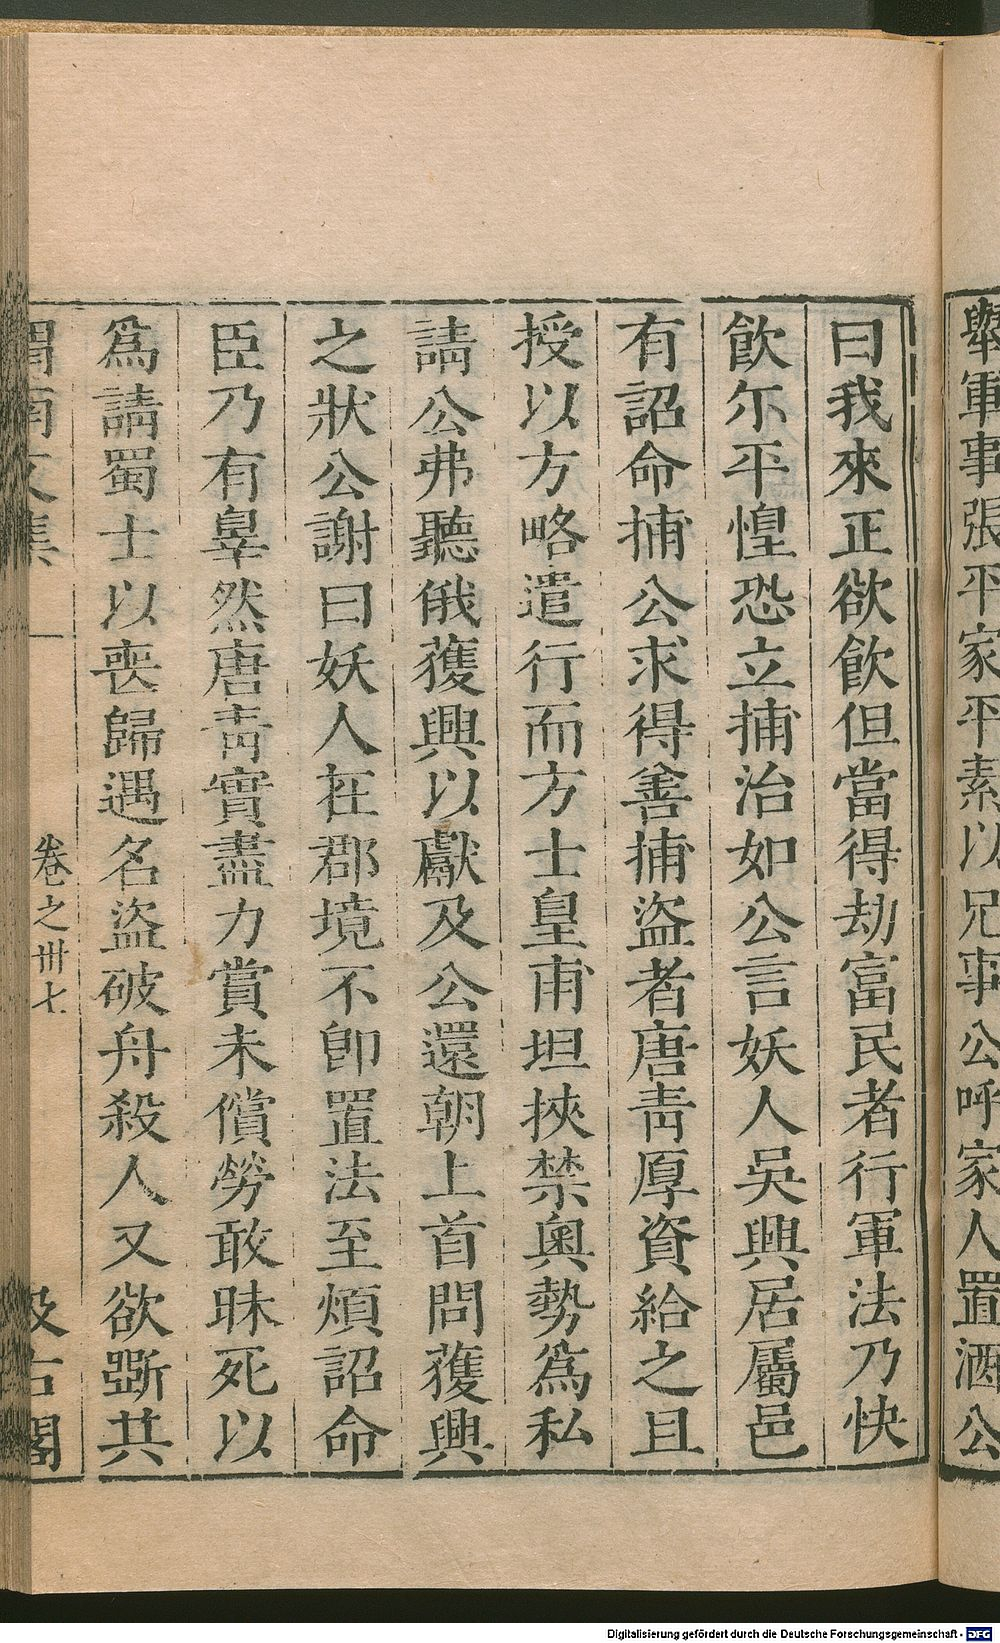 舉軍事張平家平素以兄事公呼家人置酒公
曰我來正欲飲但當得劫富民者行軍法乃快
飲尓平惶恐立捕治如公言妖人吳興居屬邑
有詔命捕公求得善捕盜者唐靑厚資給之且
授以方略遣行而方士皇甫坦挾禁奥勢爲私
請公弗聽俄獲興以獻及公還朝上首問獲興
之狀公謝曰妖人在郡境不卽置法至煩詔命
臣乃有辠然唐靑實盡力賞未償勞敢昧死以
爲請蜀士以喪歸遇名盜破舟殺人又欲斵共
渭南文集 卷之卅七 汲古閣
Digitalisierung gefördert durch die Deutsche Forschungsgemeinschaft - DFG